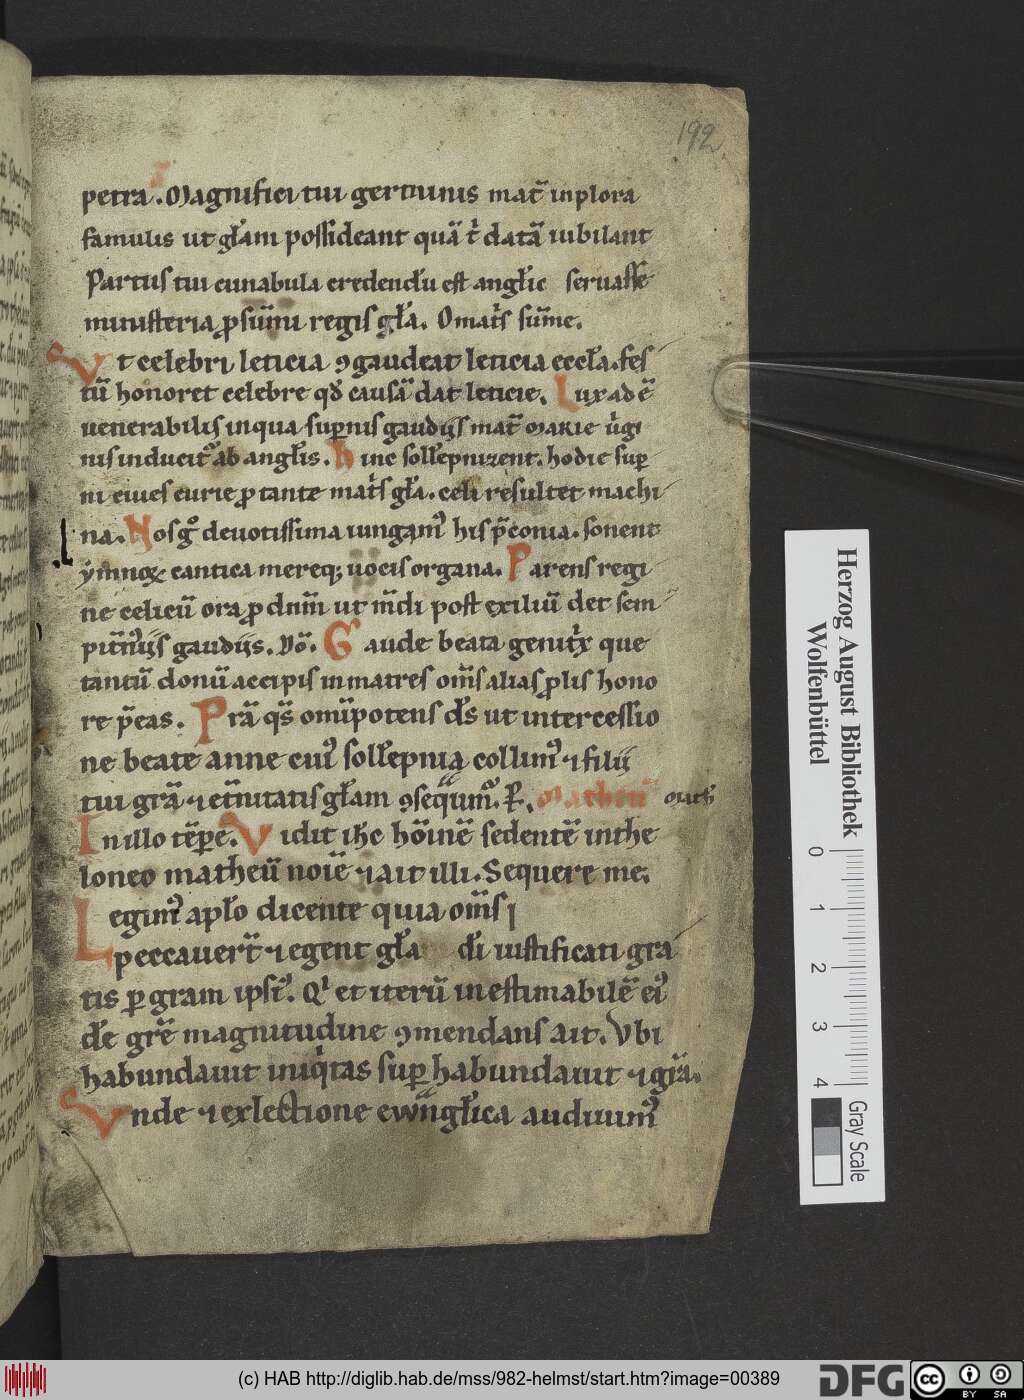 192
petra. Magnifici tui germinis mat̄ inplora
famulis ut gl̄am possideant quā t̓ datā iubilant
Partus tui cunabula credendū est angl̄ic seruasse
ministeria p̱ sūmi regis gl̄a. O mat̓s sūme.
Vt celebri leticia ꝯgaudeat leticia eccl̄a. fes
tū honoret celebre qđ causā dat leticie. Lux adē
uenerabilis in qua sup̱nis gaudijs mat̄ marie ūgi
nis inducit᷒ ab angl̄is. Hinc soll̄epnizent. hodie sup̱
ni ciues curie p̱ tante mat̓s gl̄a. celi resultet machi
na. Nos gͦ deuotissima iungam᷒ his p̄conia. sonent
ymnoꝝ cantica mereqꝫ uocis organa. Parens regi
ne celicū ora p̱ dn̄m ut m̄di post exiliū det sem
pit̄nijs gaudijs. Vō. Gaude beata genit̓x que
tantū donū accipis in matres om̄s alias p̱lis hono
re p̄eas. Prā qs̄ omīpotens ds̄ ut intercessio
ne beate anne cui᷒ soll̄epnia collim᷒ ⁊ filij
tui grā ⁊ et̄nitatis gl̄am ꝯseqūm᷒. R. Mathei math̄
In illo tēpe. Vidit ih̄c hōinē sedentē in the
loneo matheū noīe ⁊ ait illi. Sequere me.
Legim᷒ apl̄o dicente quia om̄s
peccauer̄t ⁊ egent gl̄a dī iustificati gra
tis p̱ gram ipsi᷒. Qi et iterū inestimabilē ei᷒
dē grē magnitudine ꝯmendans ait. Vbi
habundauit iniq̓tas sup̱ habundauit ⁊ grā.
Vnde ⁊ ex lectione ewangl̄ica audiuim᷒
Herzog August Bibliothek
Wolfenbüttel
0 1 2 3 4
Gray Scale
(c) HAB http://diglib.hab.de/mss/982-helmst/start.htm?image=00389
DFG
cc BY SA